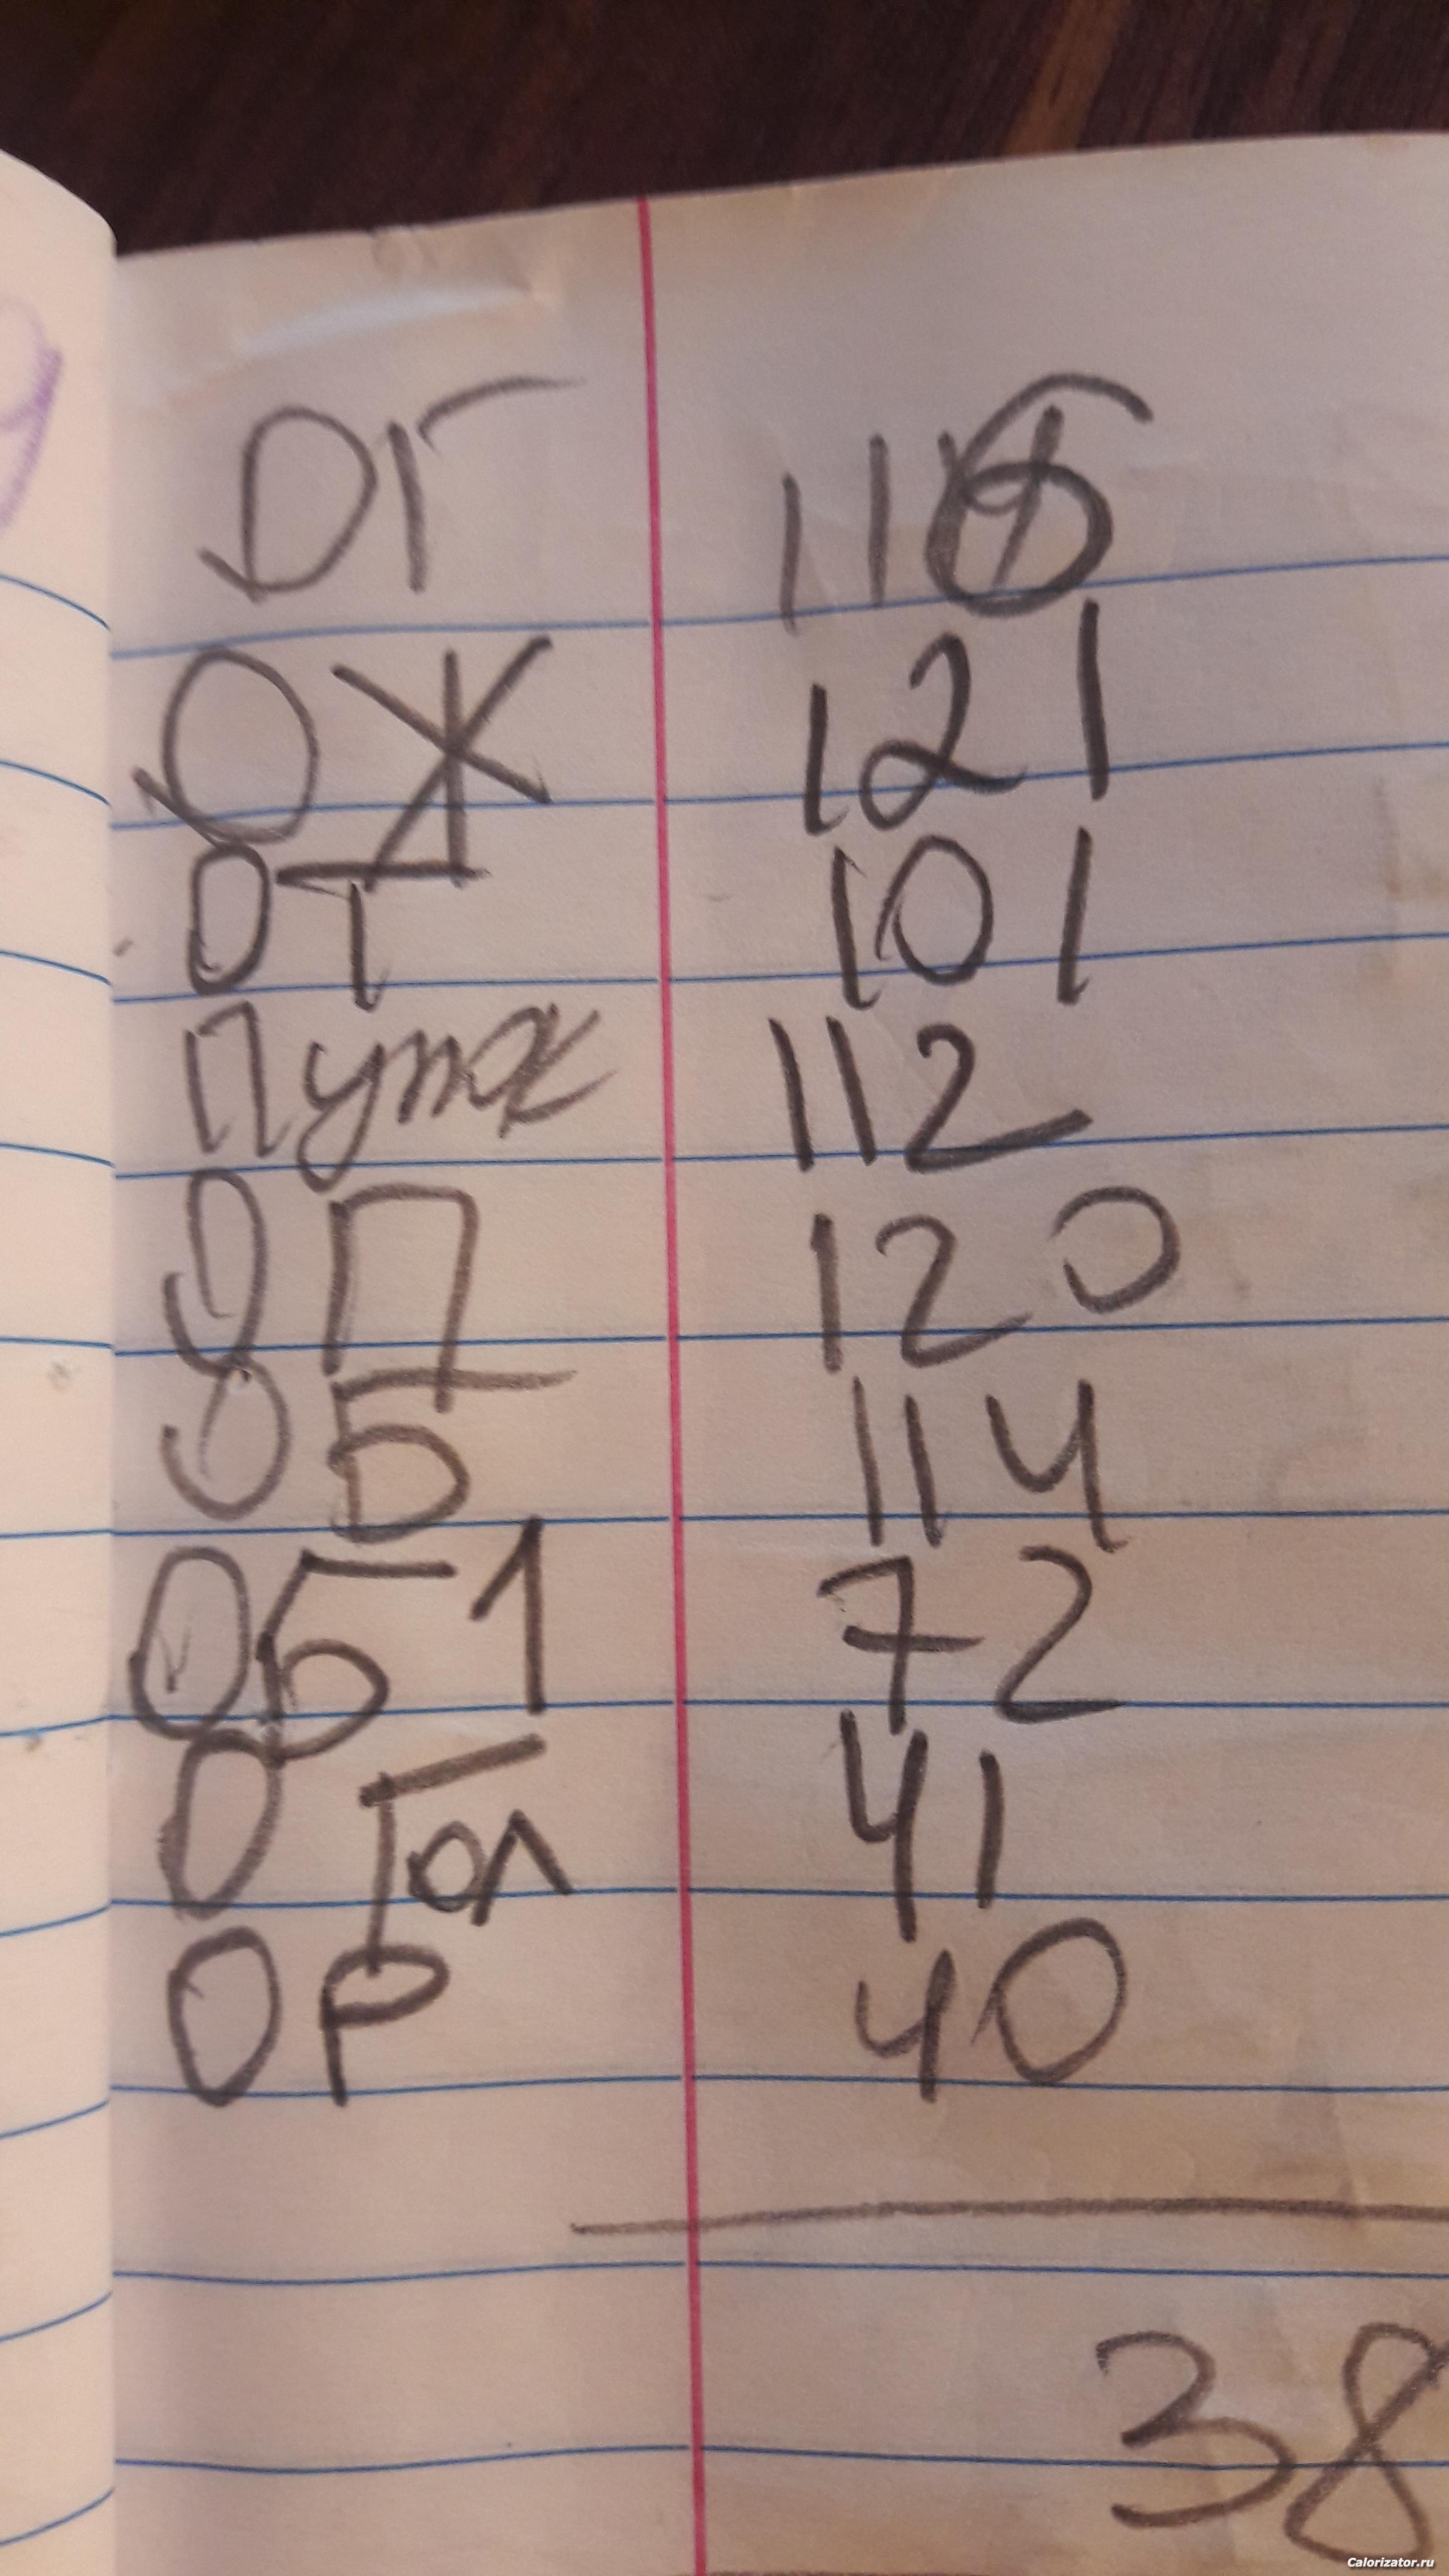 ОГ 116
ОЖ 121
ОТ 101
Пупк 112
ОП 120
ОБ 114
ОБ1 72
О Гол 41
ОР 40
38
Calorizator.ru